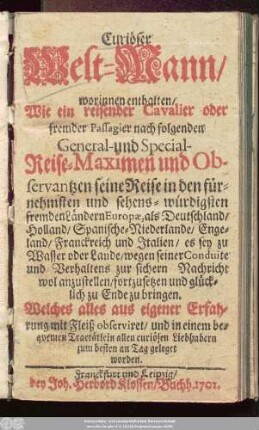 Curiöser
Welt-Mann/
worinnen enthalten/
Wie ein reisender Cavalier oder
fremder Passagier nach folgenden
General-und Special-
Reise-Maximen und Ob-
servantzen seine Reise in den für-
nehmsten und sehens-würdigsten
fremden Ländern Europæ, als Deutschland/
Holland/ Spanische-Niederlande/ Enge-
land/ Franckreich und Italien/ es sey zu
Wasser oder Lande/ wegen seiner Conduite
und Verhaltens zur sichern Nachricht
wol anzustellen/ fortzusetzen und glück-
lich zu Ende zu bringen.
Welches alles aus eigener Erfah-
rung mit Fleiß observiret/ und in einem be-
qvemen Tractätlein allen curiösen Liebhabern
zum besten an Tag geleget
worden.
Franckfurt und Leipzig/
bey Joh. Herbord Klossen/ Buchh. 1701.